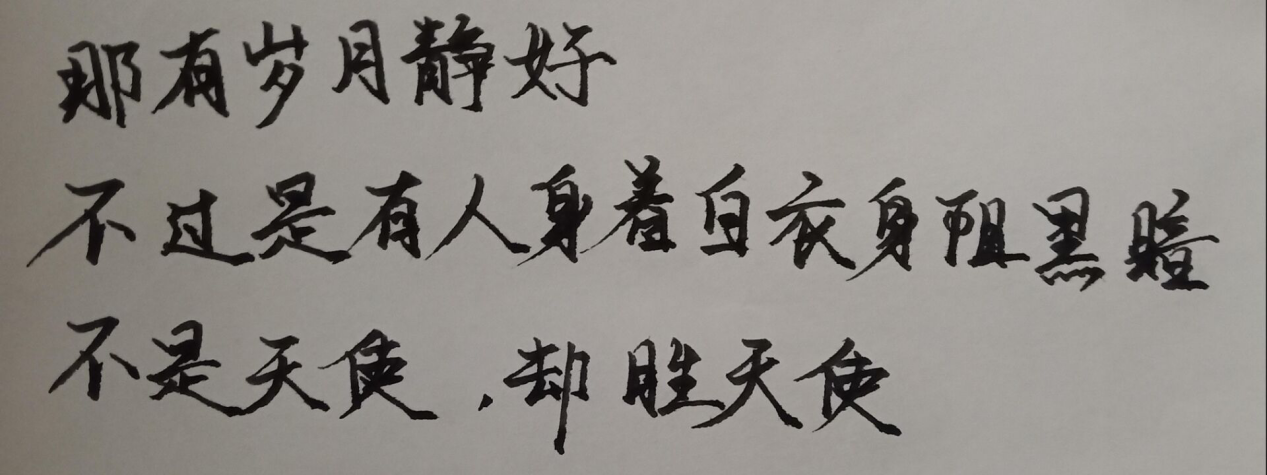 那有岁月静好
不过是有人身着白衣身阻黑暗
不是天使，却胜天使